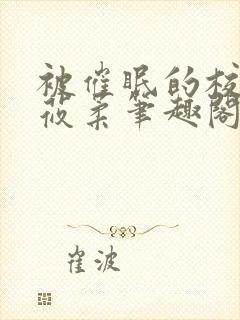 被催眠的校
莜柔笔趣阁
崔波